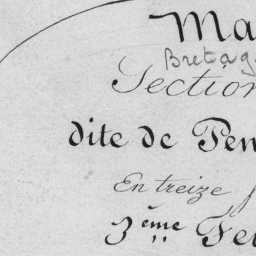 Ma
Bretag
Section
dite de Pen
En treize f
3ème Feu